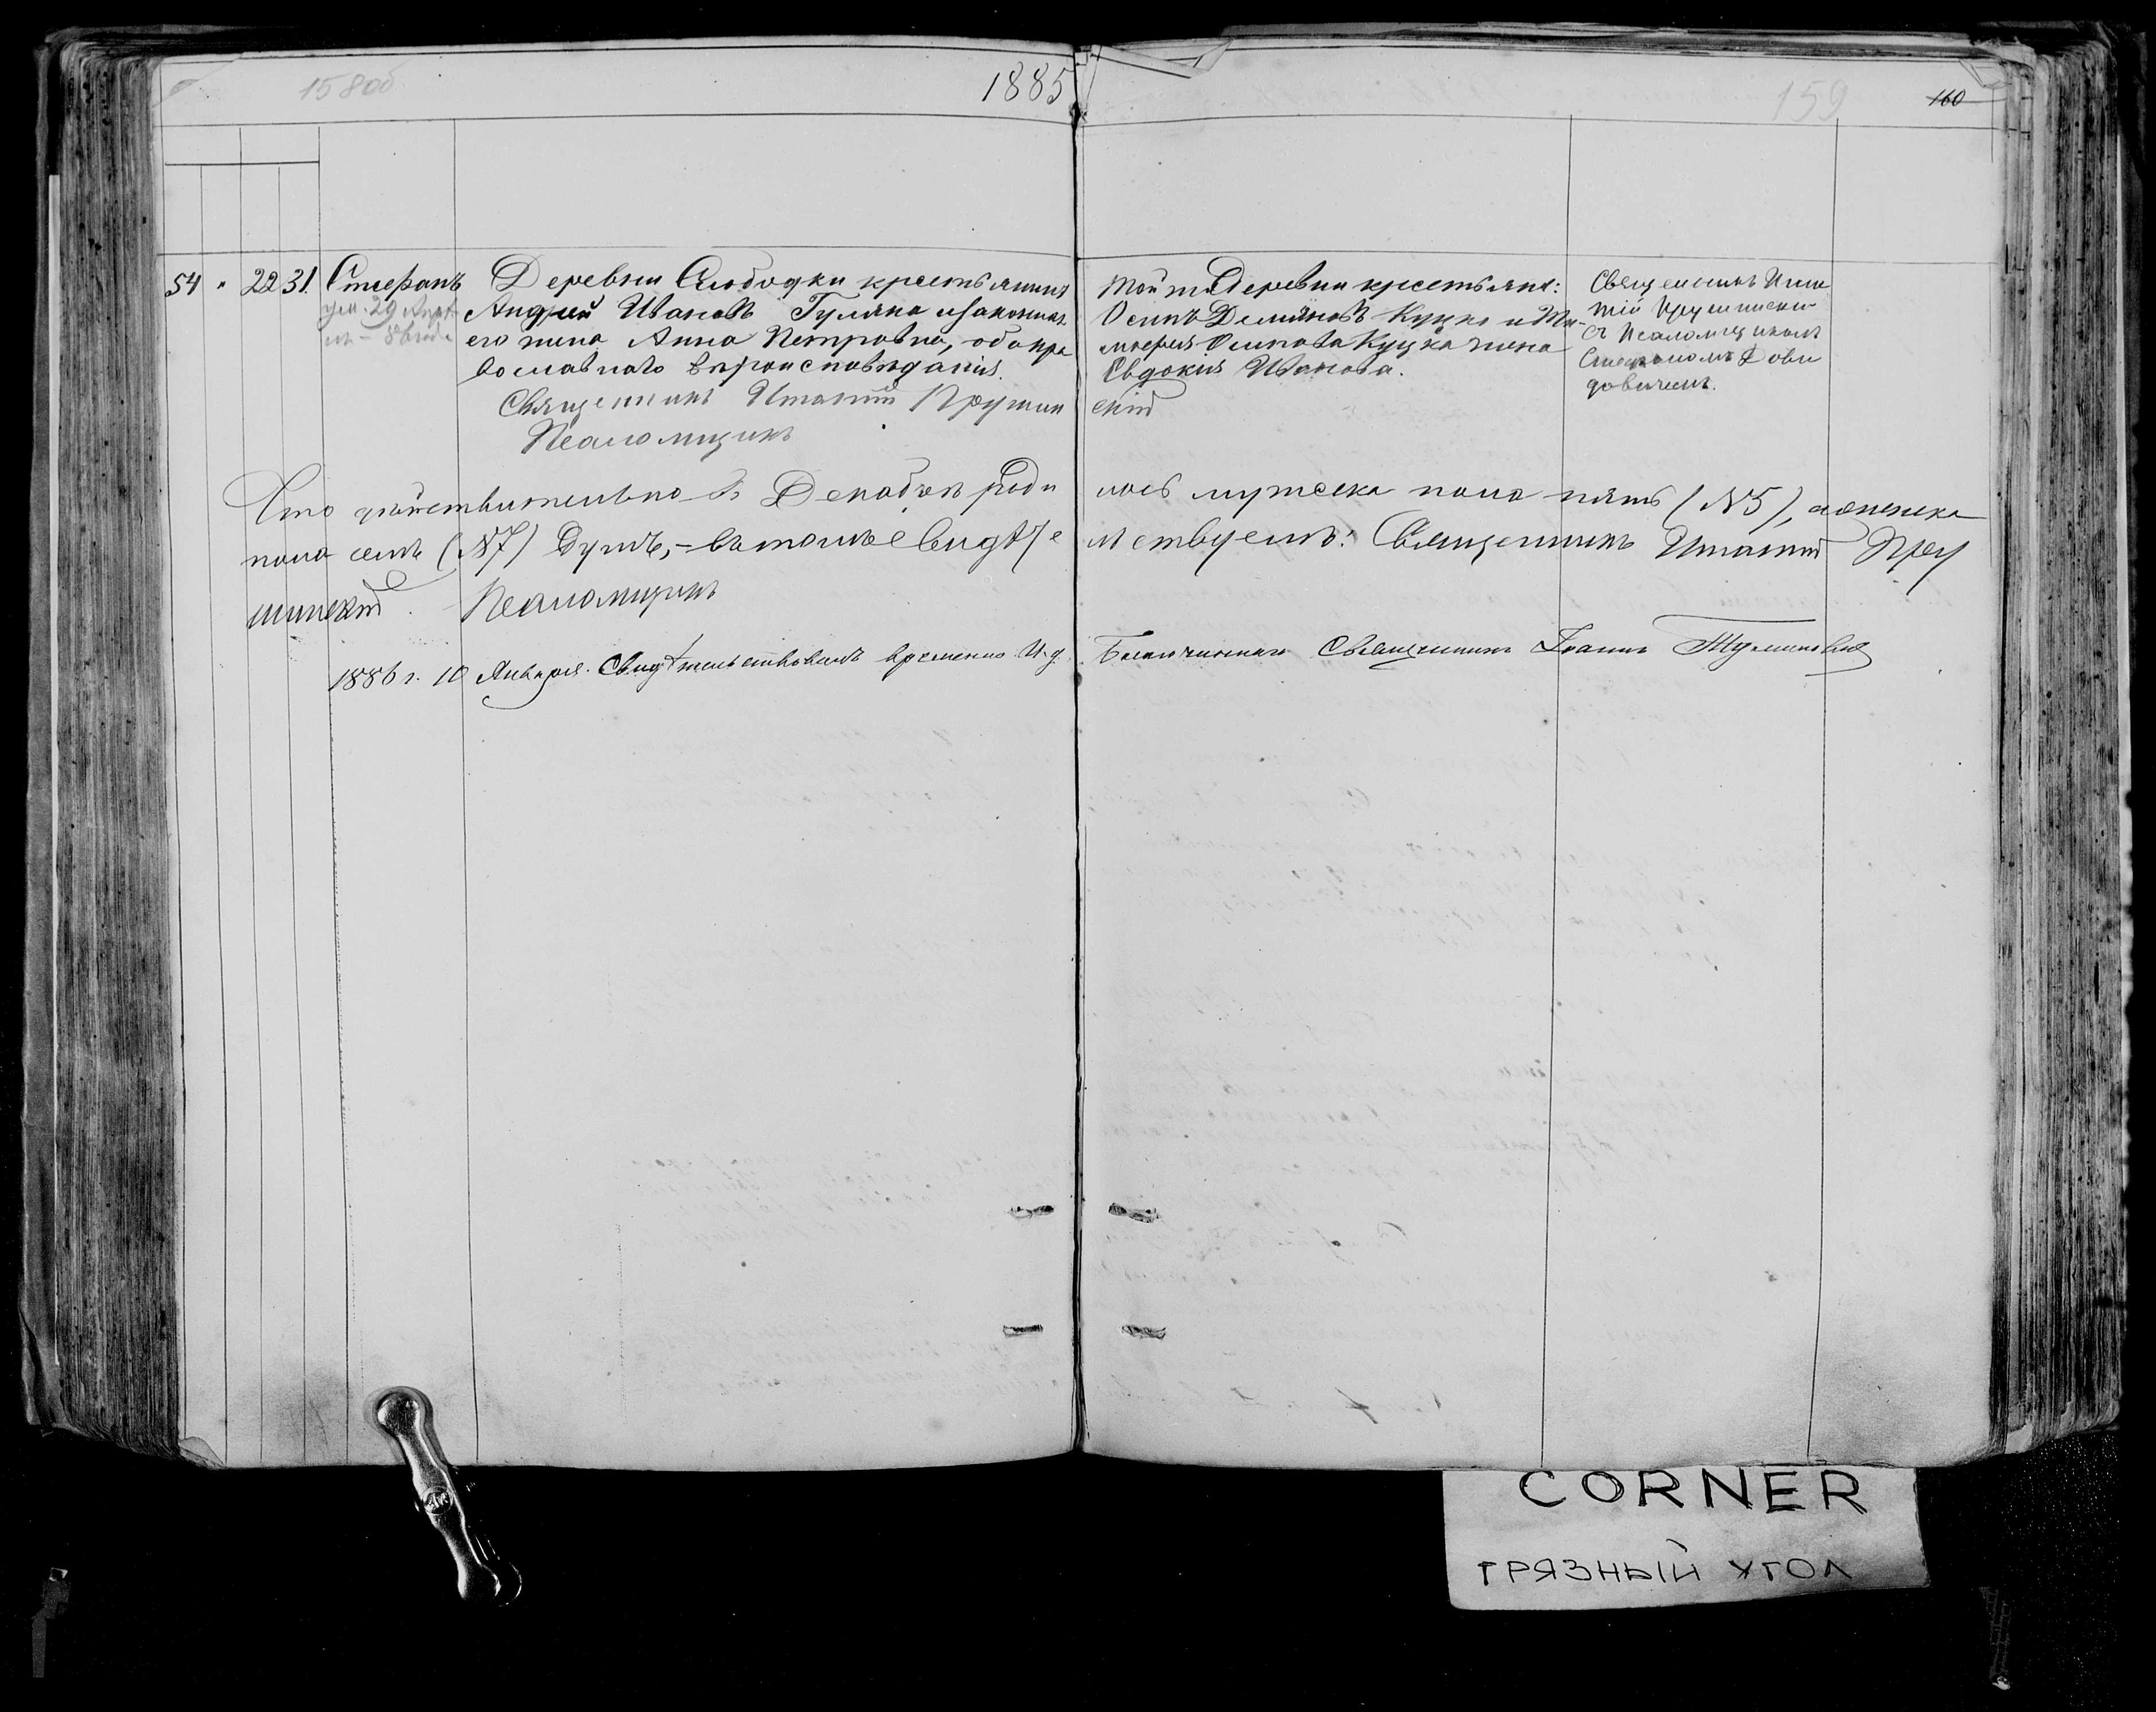 158об
1885
159
160
54 " 22 31. Стефанъ
ум. 29
Деревни Слободки крестьянинъ
Андрей Ивановъ Гуляка и законная
его жена Анна Петровна, оба пра
вославнаго вѣроисповѣданія.
Священникъ Игнатій Прушин
скій
Псаломщикъ
Той же деревни крестьяне:
Осипъ Демяновъ Куцко и Ти-
мофея Осипова Куцка жена
Евдокія Иванова.
Священникъ Игна
тій Прушинскій
съ Псаломщикомъ
Стефаномъ Дови
довичемъ.
Что дѣйствительно въ Декабрѣ роди лось мужеска пола пять (№5), а женска
пола семь (№7) душъ,- въ томъ свидѣте льствуемъ: Священникъ Игнатій Пру
шинскій. Псаломщикъ
1886 г. 10 Января. Свидѣтельствовалъ временно И.д. Благочиннаго Священникъ Іоаннъ
CORNER
ГРЯЗНЫЙ УГОЛ